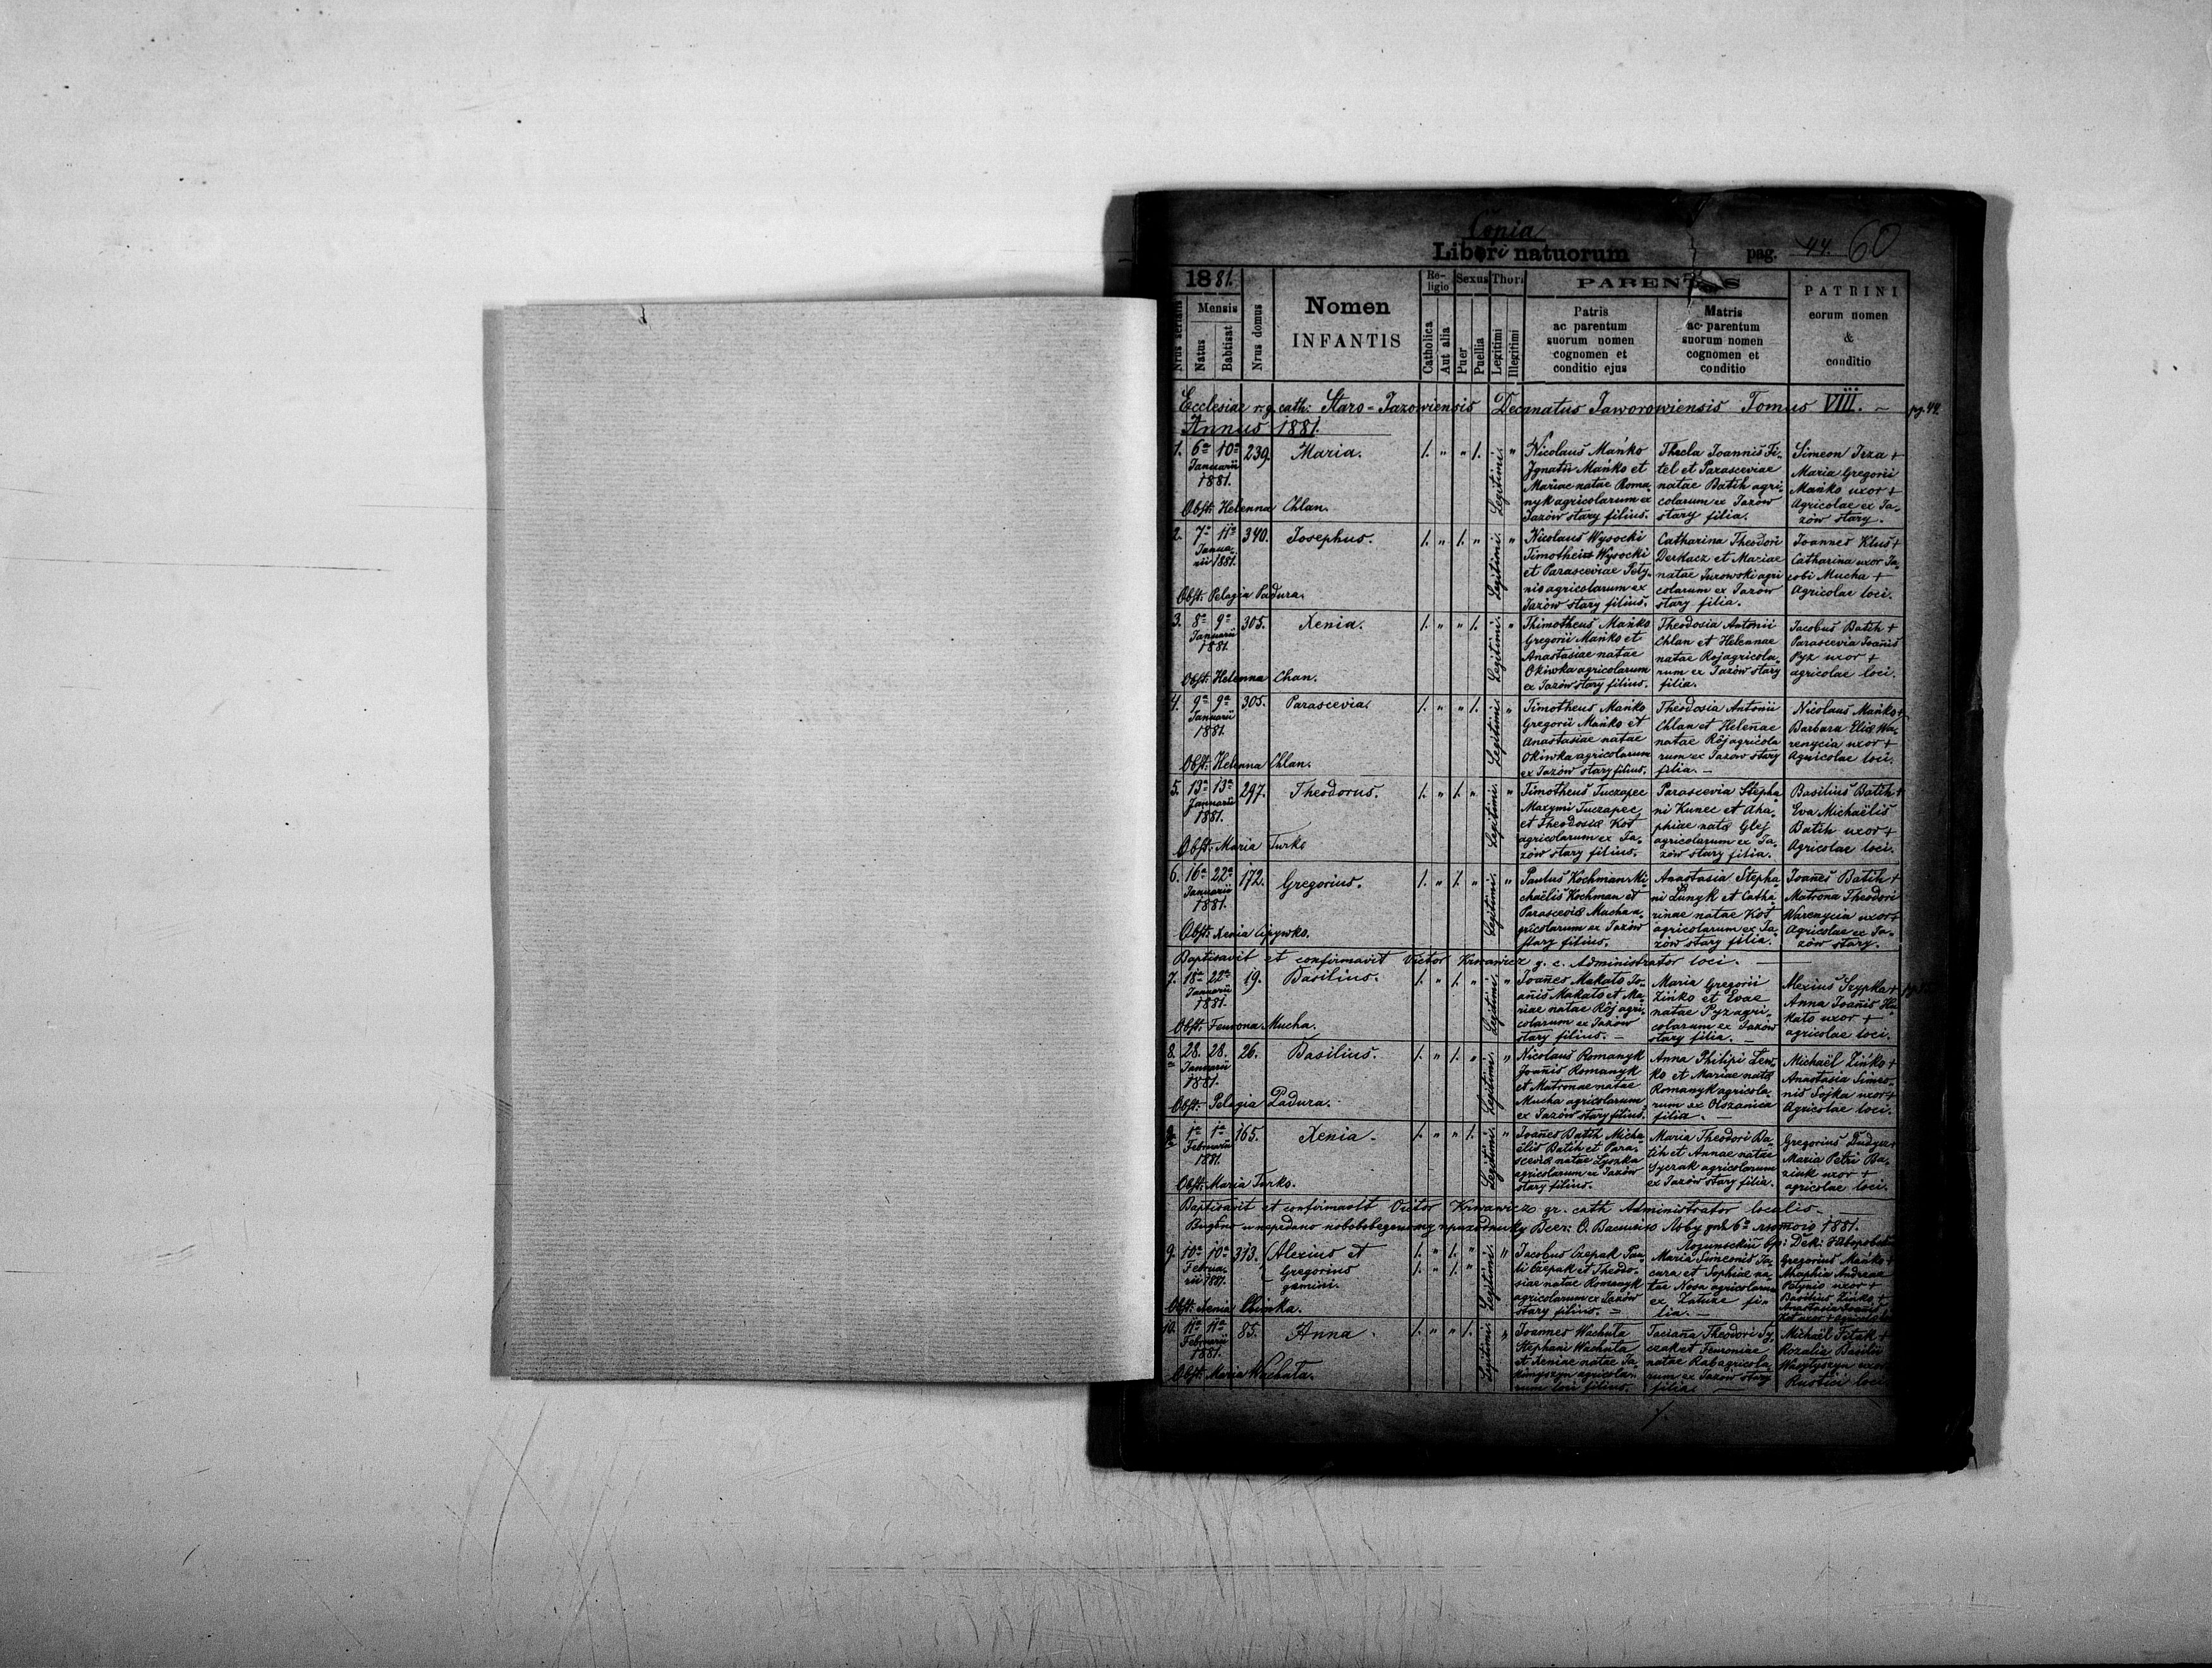 Copia
Liberi natuorum pag. 44. 60
1881.
Nrus serialis
Mensis
Natus
Babtisat
Nrus domus
Nomen
INFANTIS
Religio
Catholica
Aut alia
Sexus
Puer
Puella
Thori
Legitimi
Illegitimi
PARENTES
Patris
ac parentum
suorum nomen
cognomen et
conditio ejus
Matris
ac parentum
suorum nomen
cognomen et
conditio
PATRINI
eorum nomen
&
conditio
Ecclesiae r. g. cath: Staro-Jazowiensis Decanatus Jaworowiensis Tomus VIII. – pg. 44.
Annus 1881.
1. 6a 10a Januarii 1881. 239. Maria. /. " " /. Legitimi. "
Obst: Helenna Chlan.
Nicolaus Mańko
Ignatii Mańko et
Mariae natae Roma-
nyk agricolarum ex
Jazów stary filius.
Thecla Joannis Fi-
tel et Parasceviae
natae Batih agri-
colarum ex Jazów
stary filia.
Simeon Irza +
Maria Gregorii
Mańko uxor +
Agricolae ex Ja-
zów stary.
2. 7a 11a Januarii 1881. 340. Josephus. /. " /. " Legitimi. "
Obst: Pelagia Padura.
Nicolaus Wysocki
Timotheus Wysocki
et Parasceviae Pety-
nis agricolarum ex
Jazów stary filius.
Catharina Theodori
Derkacz et Mariae
natae Turowski agri
colarum ex Jazów
stary filia.
Joannes Klus +
Catharina uxor Ja-
cobi Mucha +
Agricolae loci.
3. 8a 9a Januarii 1881. 305. Xenia. /. " " /. Legitimi. "
Obst: Helenna Chan.
Thimotheus Mańko
Gregorii Mańko et
Anastasiae natae
Okiwka agricolarum
ex Jazów stary filius.
Theodosia Antonii
Chlan et Helenae
natae Roj agricola-
rum ex Jazów stary
filia.
Jacobus Batih +
Parascevia Joanis
Pyz uxor +
agricolae loci.
4. 9a 9a Januarii 1881. 305. Parascevia. /. " " /. Legitimi. "
Obst: Helenna Chlan.
Timotheus Mańko
Gregorii Mańko et
Anastasiae natae
Okiwka agricolarum
ex Jazów stary filius.
Theodosia Antonii
Chlan et Helenae
natae Rój agricola
rum ex Jazów stary
filia. –
Nicolaus Mańko +
Barbara Eliae Wa-
renycia uxor +
Agricolae loci.
5. 13a 13a Januarii 1881. 297. Theodorus. /. " /. " Legitimi. "
Obst: Maria Turko
Timotheus Tuczapec
Maxymi Tuczapec
et Theodosiae Kot
agricolarum ex Ja-
zów stary filius.
Parascevia Stepha-
ni Kunec et Aha-
phiae natae Glej
agricolarum ex Ja-
zów stary filia.
Basilius Batih +
Eva Michaëlis
Batih uxor +
Agricolae loci.
6. 16a 22a Januarii 1881. 172. Gregorius. /. " /. " Legitimi. "
Obst: Xenia Cipywko.
Paulus Kochman Mi-
chaëlis Kochman et
Parasceviae Mucha a-
gricolarum ex Jazów
stary filius.
Anastasia Stepha-
ni Lunyk et Catha-
rinae natae Kot
agricolarum ex Ja-
zów stary filia.
Joanes Batih +
Matrona Theodori
Warenycia uxor +
Agricolae ex Ja-
zów stary.
Baptisavit et confirmavit Victor Krwawicz g. c. Administrator loci.
7. 18a 22a Januarii 1881. 19. Basilius. /. " /. " Legitimi. "
Obst: Feurona Mucha.
Joanes Makato Jo-
anis Makato et Ma-
riae natae Rój agri-
colarum ex Jazów
stary filius. –
Maria Gregorii
Zińko et Evae
natae Pyz agri-
colarum ex Jazów
stary filia. –
Alexius Szypka +
Anna Joanis
uxor +
agricolae loci.
8. 28. 28. Januarii 1881. 26. Basilius. /. " /. " Legitimi. "
Obst: Pelagia Padura.
Nicolaus Romanyk
Joanis Romanyk
et Matronae natae
Mucha agricolarum
ex Jazów stary filius.
Anna Philipi Lew-
ko et Mariae natae
Romanyk agricola-
rum ex Olszanica
filia. –
Michaël Zińko +
Anastasia Simeo-
nis Sojka uxor +
Agricolae loci.
1a 1a Februarii 1881. 165. Xenia. /. " " /. Legitimi. "
Obst: Maria Turko.
Joanes Batih Micha-
ëlis Batih et Para-
sceviae natae Lyszka
agricolarum ex Jazów
stary filius.
Maria Theodori Ba-
tih et Annae natae
Syczak agricolarum
ex Jazów stary filia.
Gregorius Dudycz +
Maria Petri Ba-
ziuk uxor +
agricolae loci.
Baptisavit et confirmavit Victor Krwawicz gr. cath Administrator localis.
1881.
9. 10a 10a Februarii 1881. 313. Alexius et
Gregorius
gemini.
/. " /. " Legitimi. "
/. " /. "
Obst: Xenia
Jacobus Czepak Pau-
li Czepak et Theodo-
siae natae Romanyk
agricolarum ex Jazów
stary filius. =
Maria Simeonis
et Sophiae na-
tae Nosa agricolarum
ex Zaluze fi-
lia. –
Gregorius Mańko +
Ahaphia Andreae
Petynio uxor +
Basilius Zińko +
Anastasia Joanis
Kot uxor +
10. 11a 11a Februarii 1881. 85. Anna. /. " " /. Legitimi. "
Obst: Maria Wachuta.
Joannes Wachuta
Stephani Wachuta
et Xeniae natae Ja-
kimyszyn agricola-
rum loci filius.
Taciana Theodori Sy-
czak et Feuroniae
natae Rab agricola-
rum ex Jazów stary
filia. –
Michaël Fitak +
Rozalia Basilii
Wasylyszyn uxor
Rustici loci